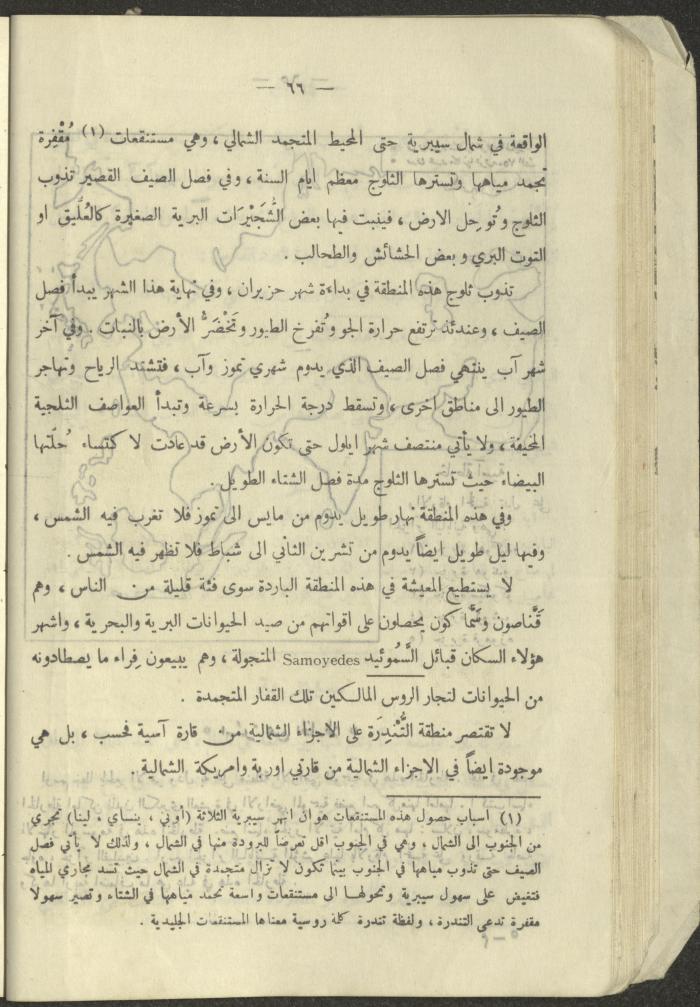 — ٦٦ —
الواقعة في شمال سيبرية حتى المحيط المتجمد الشمالي ، وهي مستنقعات (١) مُقْفِرة
تجمد مياهها وتسترها الثلوج معظم ايام السنة ، وفي فصل الصيف القصير تذوب
الثلوج وتُوحِل الارض ، فينبت فيها بعض الشُّجَيْرَات البرية الصغيرة كالعُلَّيق او
التوت البري وبعض الحشائش والطحالب .
تذوب ثلوج هذه المنطقة في بداءة شهر حزيران ، وفي نهاية هذا الشهر يبدأ فصل
الصيف ، وعندئذ ترتفع حرارة الجو وتُفرخ الطيور وتَخْضَرُّ الأرض بالنبات . وفي آخر
شهر آب ينتهي فصل الصيف الذي يدوم شهري تموز وآب ، فتشتد الرياح وتهاجر
الطيور الى مناطق اخرى ، وتسقط درجة الحرارة بسرعة وتبدأ العواصف الثلجية
المخيفة ، ولا يأتي منتصف شهر ايلول حتى تكون الأرض قد عادت لاكتساء حُلّتها
البيضاء حيث تسترها الثلوج مدة فصل الشتاء الطويل .
وفي هذه المنطقة نهار طويل يدوم من مايس الى تموز فلا تغرب فيه الشمس ،
وفيها ليل طويل ايضاً يدوم من تشرين الثاني الى شباط فلا تظهر فيه الشمس .
لا يستطيع المعيشة في هذه المنطقة الباردة سوى فئة قليلة من الناس ، وهم
قَنَّاصون وسَمَّاكون يحصلون على اقواتهم من صيد الحيوانات البرية والبحرية ، واشهر
هؤلاء السكان قبائل السَّمُوئيد Samoyedes المتجولة ، وهم يبيعون فِراء ما يصطادونه
من الحيوانات لتجار الروس المالكين تلك القفار المتجمدة .
لا تقتصر منطقة التُّنْدِرَة على الاجزاء الشمالية من قارة آسية فحسب ، بل هي
موجودة ايضاً في الاجزاء الشمالية من قارتي اوربة وامريكة الشمالية .
(١) اسباب حصول هذه المستنقعات هو ان انهر سيبرية الثلاثة (أوبي ، ينساي ، لينا) تجري
من الجنوب الى الشمال ، وهي في الجنوب اقل تعرضاً للبرودة منها في الشمال ، ولذلك لا يأتي فصل
الصيف حتى تذوب مياهها في الجنوب بينما تكون لا تزال متجمدة في الشمال حيث تسد مجاري المياه
فتفيض على سهول سيبرية وتحولها الى مستنقعات واسعة تجمد مياهها في الشتاء وتصير سهولاً
مقفرة تدعى التندرة ، ولفظة تندرة كلمة روسية معناها المستنقعات الجليدية .